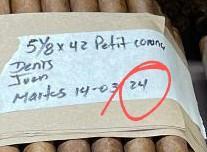 5 1/8 x 42 Petit corona
Denis
Juan
Martes 14-03 24